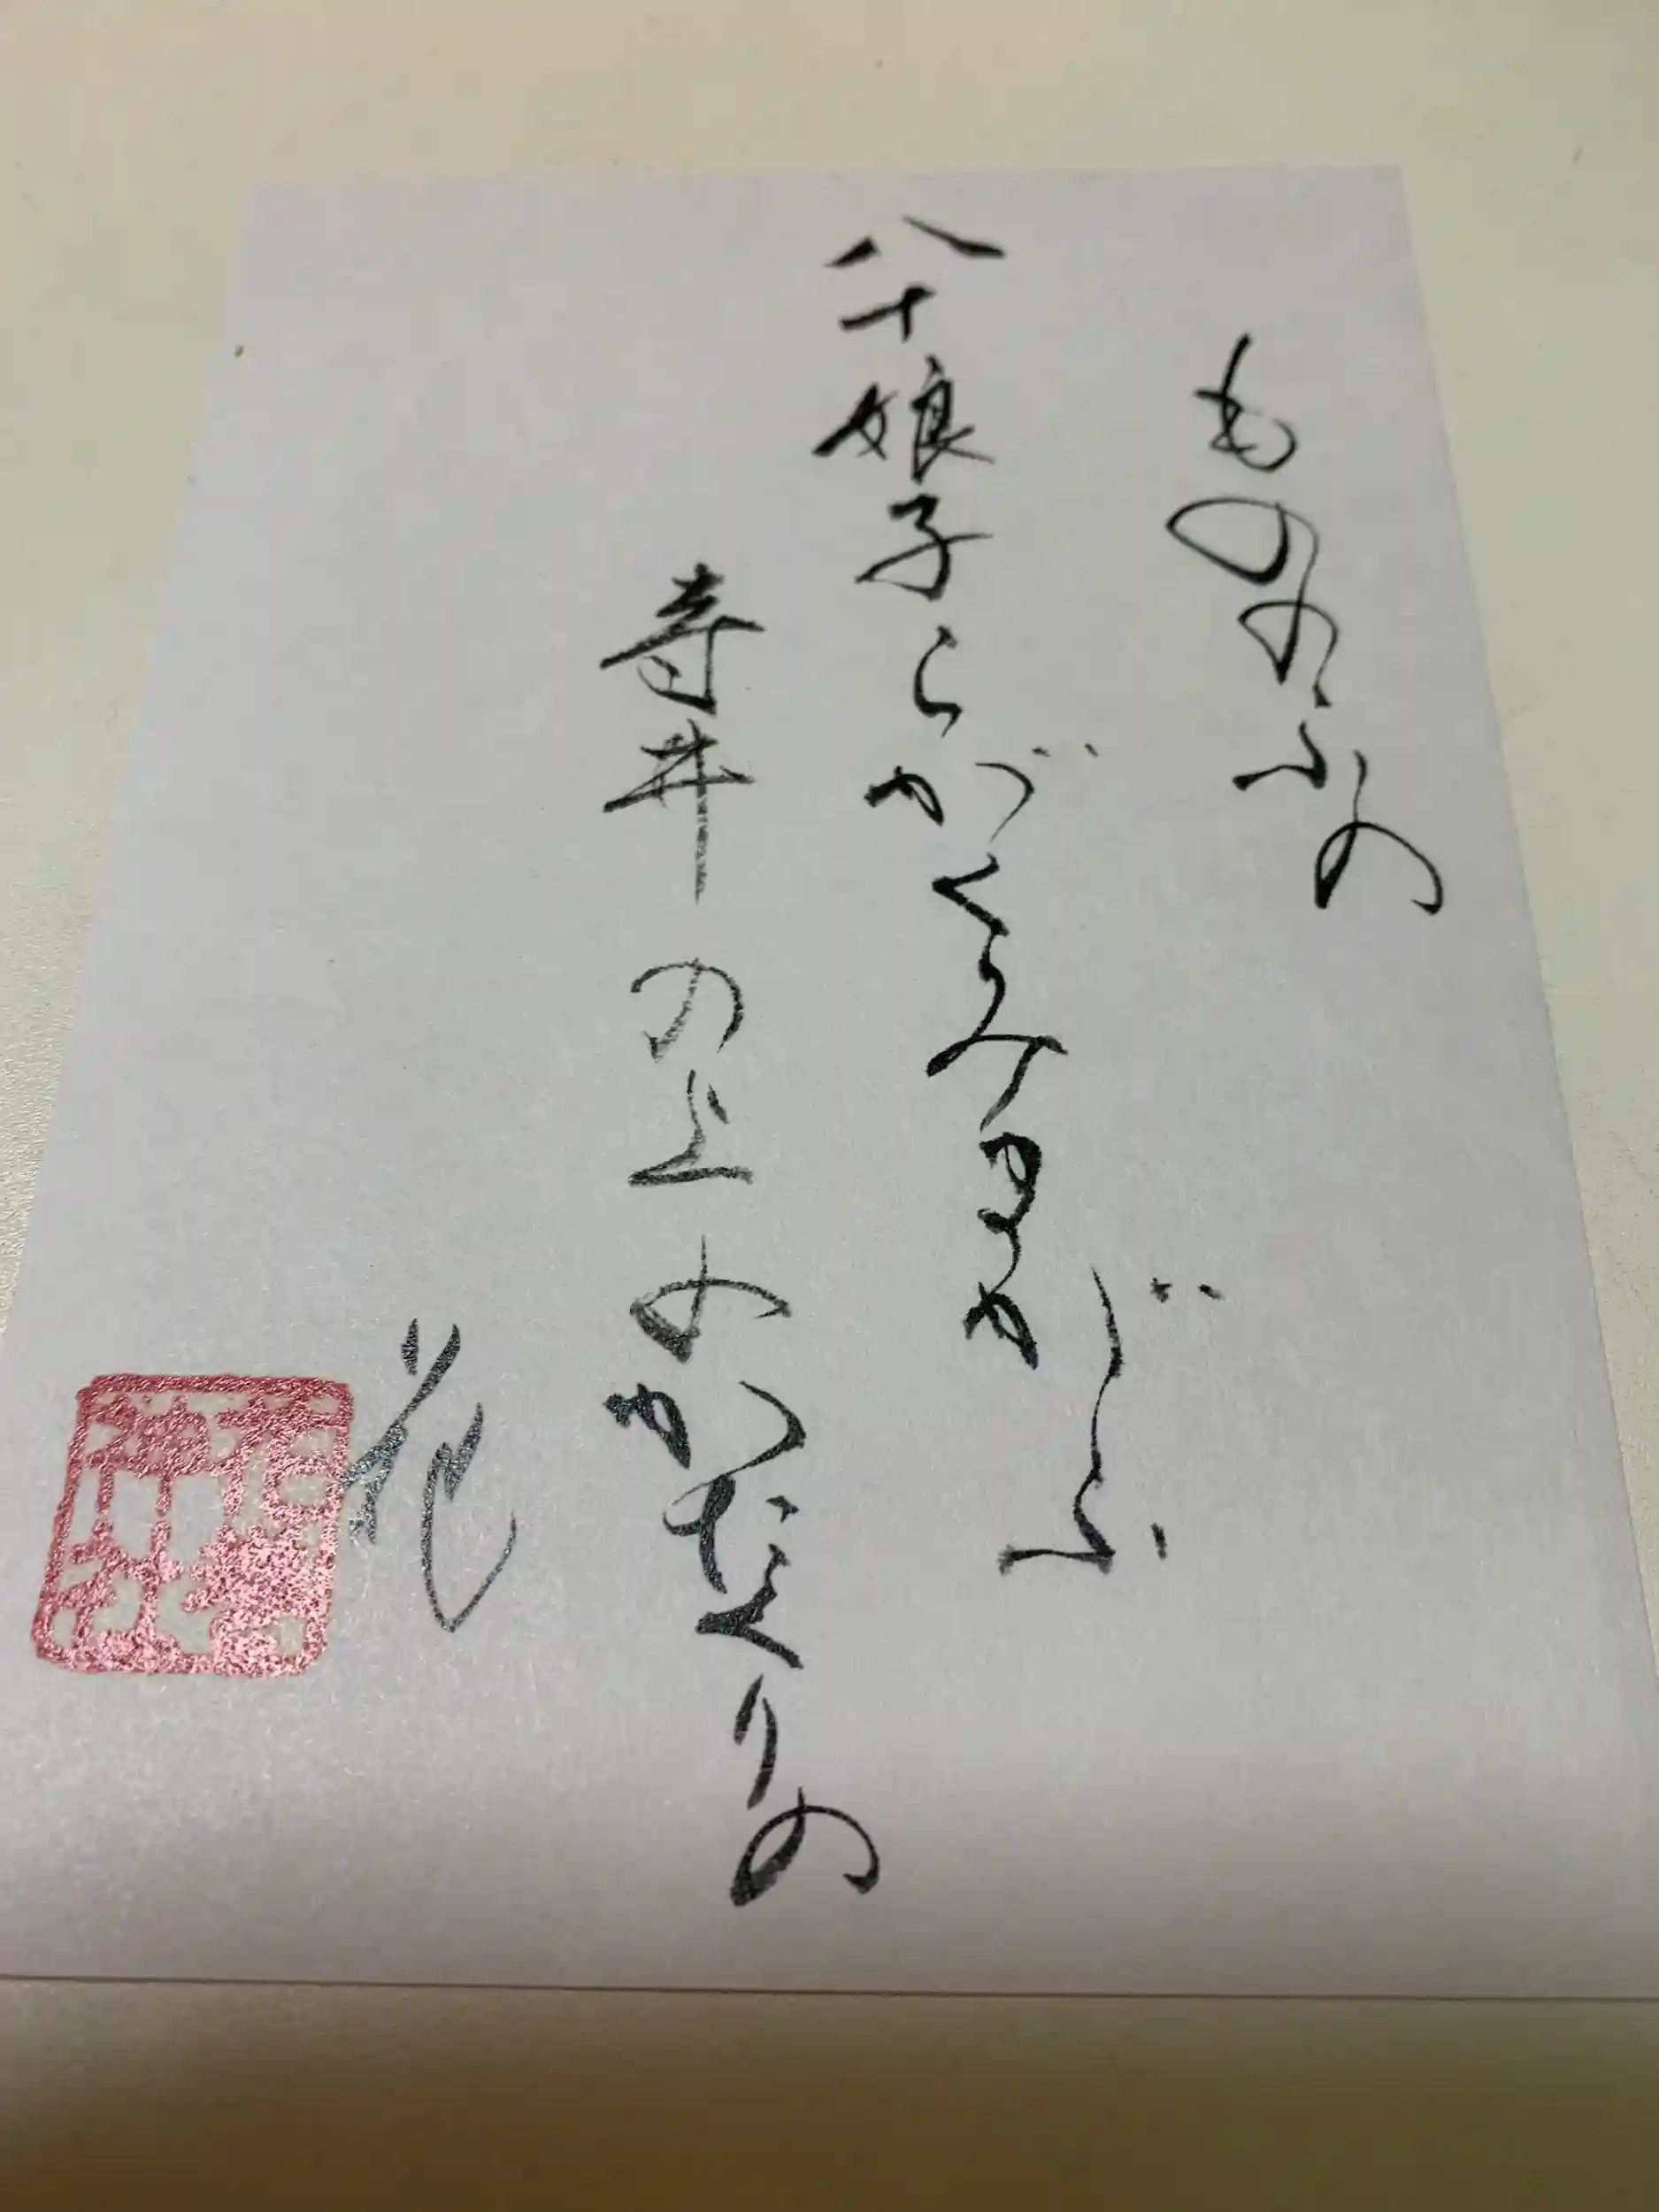 ものゝふの
八十娘子らがくみまがふ
寺井の上のかたくりの
花